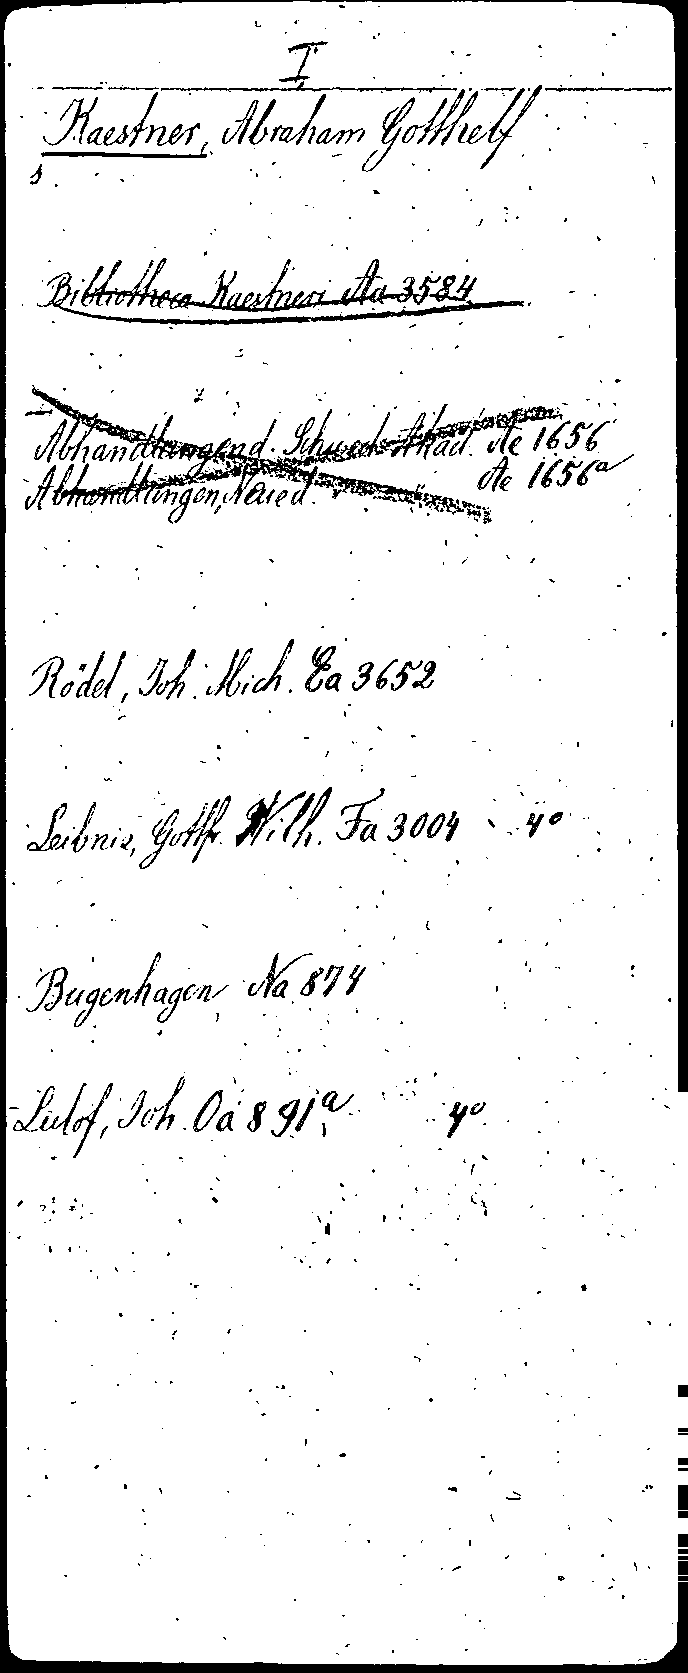 I
Kaestner, Abraham Gotthelf
s
Bibliotheca Kaestneri Aa 3584
Abhandlungen d. Schwed. Akad. Ae 1656
Abhandlungen, Neue d. " Ae 1656a
Rödel, Joh. Mich. Ea 3652
Leibniz, Gottfr. Wilh. Fa 3004 4o
Bugenhagen Na 874
Lulof, Joh. Oa 891a 4o